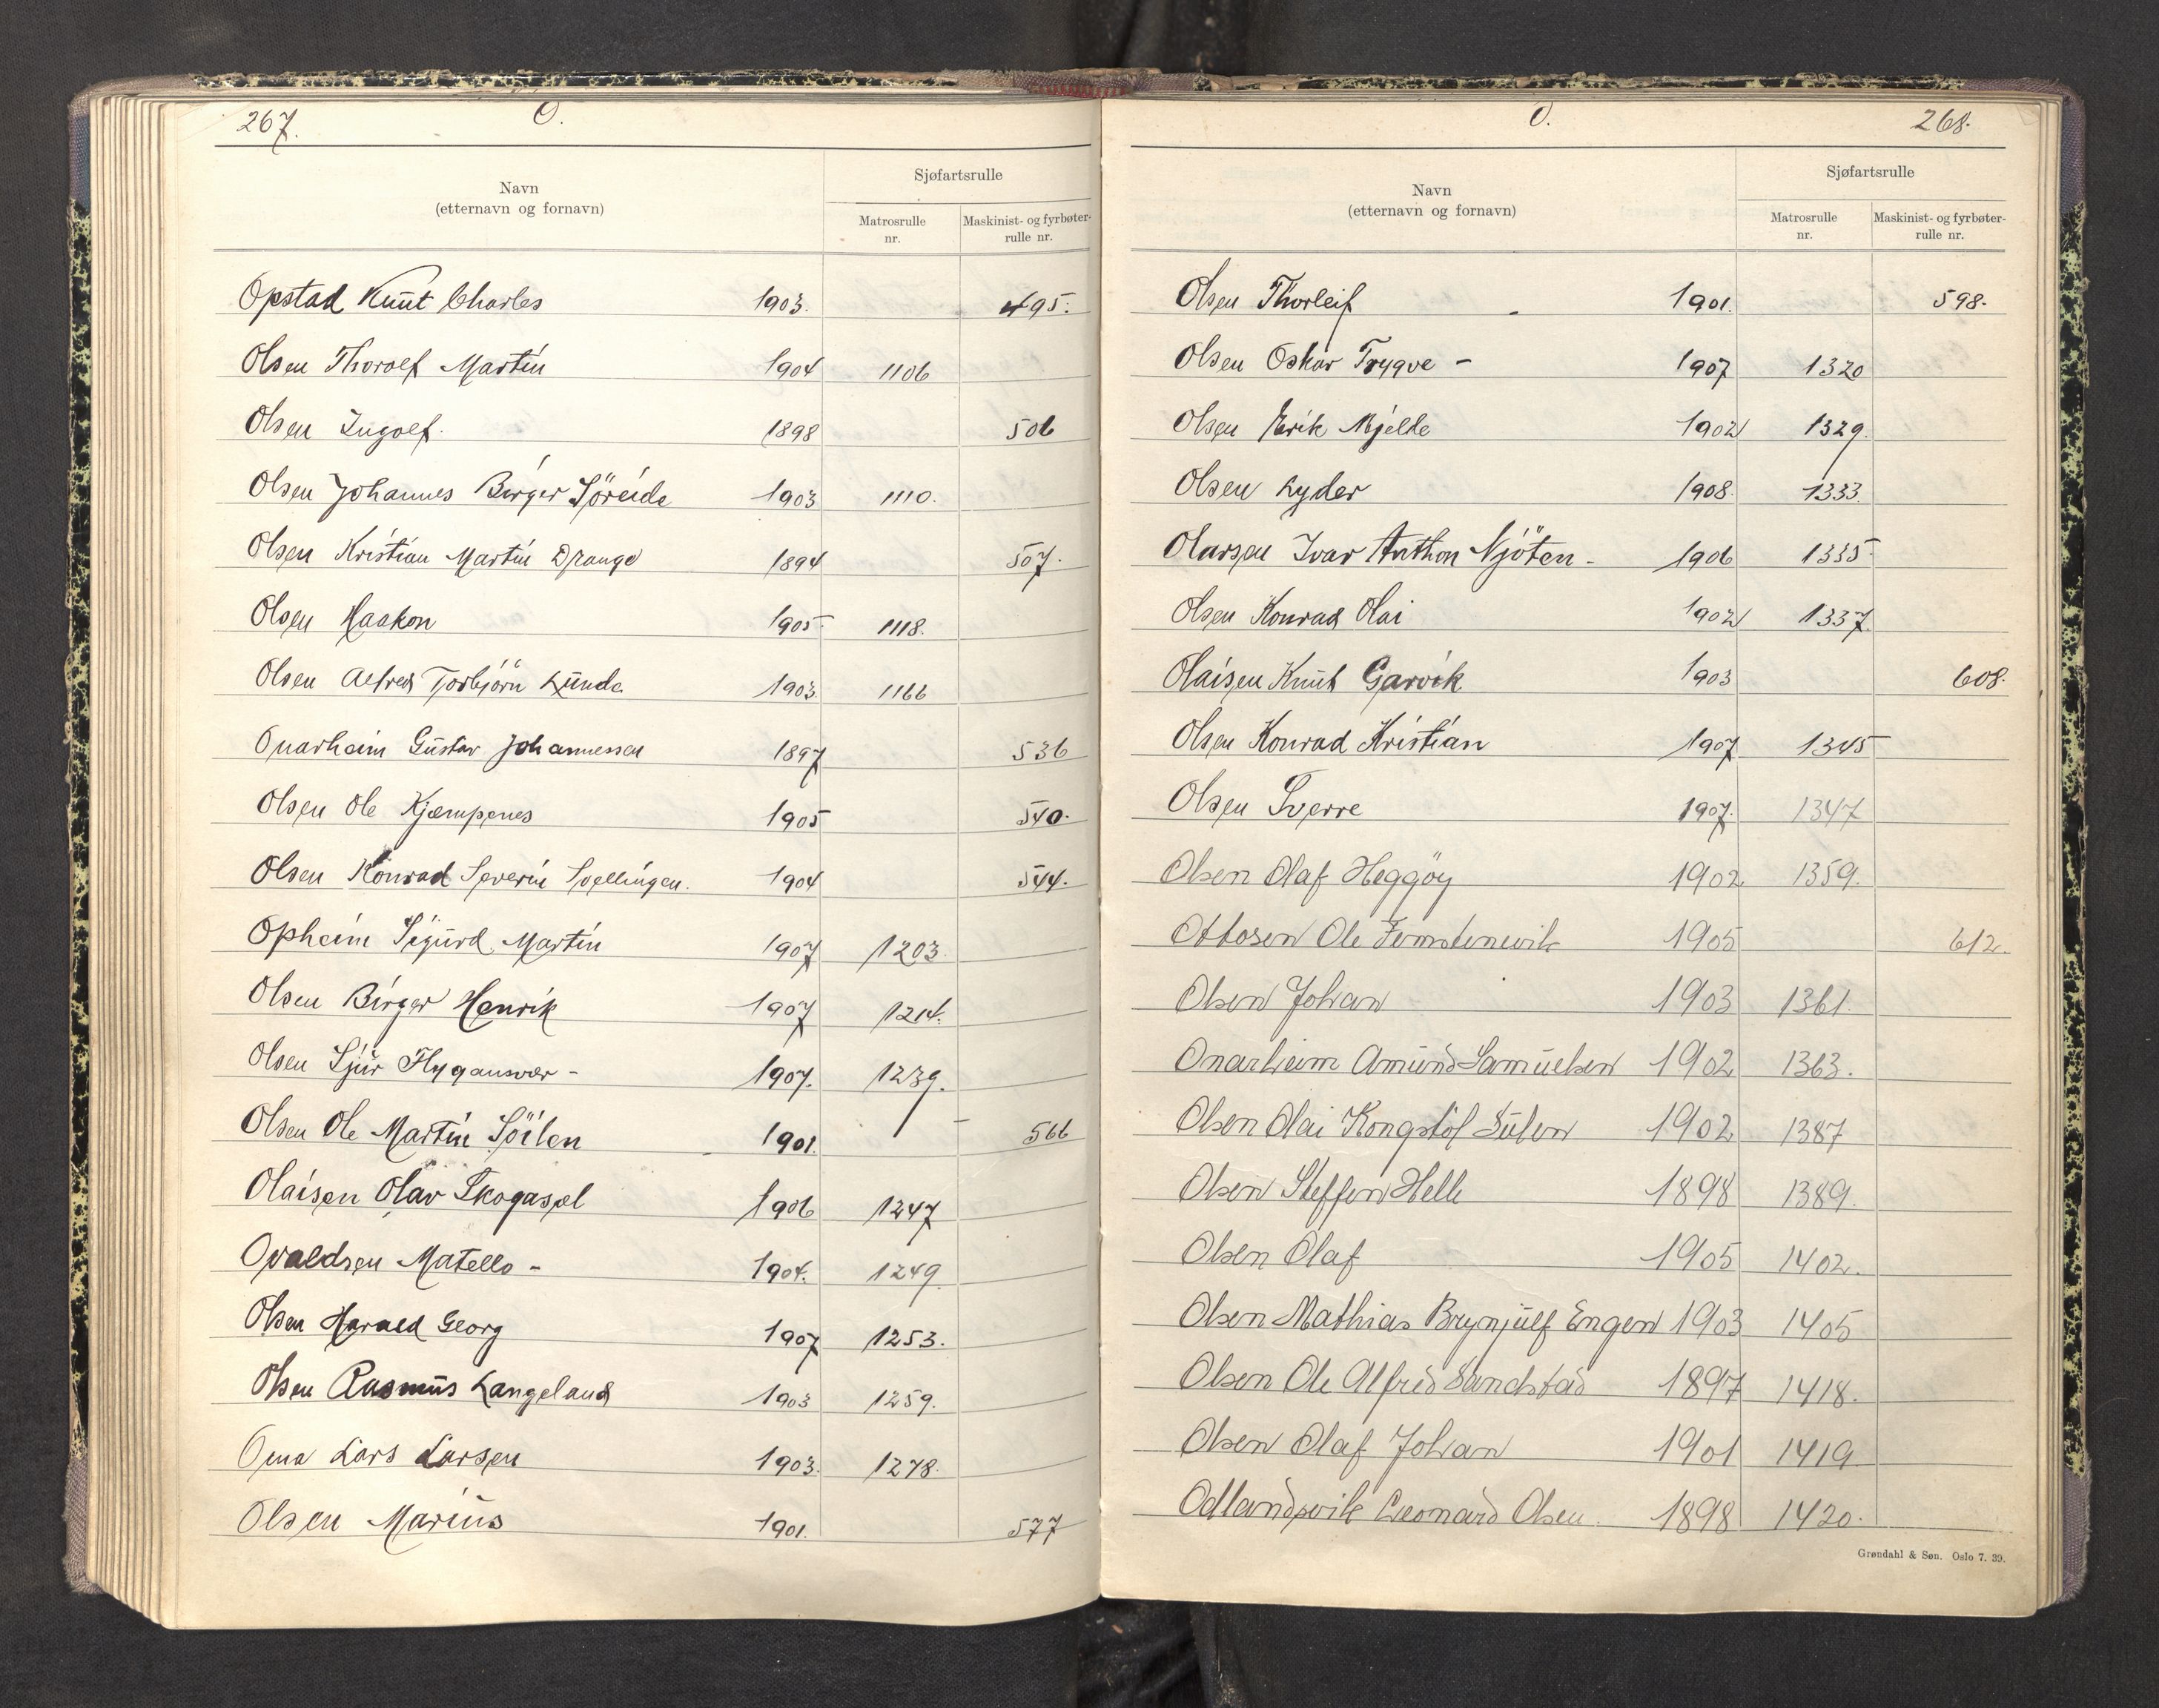 267.
O.
Navn
(etternavn og fornavn)
Sjøfartsrulle
Matrosrulle
nr.
Maskinist- og fyrbøter-
rulle nr.
Opstad Knut Charles 1903. 495.
Olsen Thorolf Martin 1904 1106
Olsen Ingolf. 1898 506
Olsen Johannes Birger Söreide 1903 1110.
Olsen Kristian Martin Drange 1894 507.
Olsen Haakon 1905 1118.
Olsen Alfred Torbjörn Lunde 1903 1166
Onarheim Gustav Johannessen 1897 536
Olsen Ole Kjempenes 1905 540.
Olsen Konrad Severin Spellingen. 1904 544.
Opheim Sigurd Martin 1907 1203
Olsen Birger Henrik 1907 1214.
Olsen Sjur Flyganvær - 1907. 1239.
Olsen Ole Martin Söilen 1901. 566
Olaisen Olav Skogasel 1906 1247
Ovaldsen Matello - 1904. 1249
Olsen Harald Georg 1907 1253.
Olsen Rasmus Langeland 1903 1259.
Oma Lars Larsen 1903. 1278.
Olsen Marius 1901. 577
O.
268.
Navn
(etternavn og fornavn)
Sjøfartsrulle
Matrosrulle
nr.
Maskinist- og fyrbøter-
rulle nr.
Olsen Thorleif - 1901. 598.
Olsen Oskar Trygve - 1907 1320
Olsen Erik Mjelde 1902 1329.
Olsen Lyder 1908. 1333.
Olarsen Ivar Anthon Njöten - 1906 1335
Olsen Konrad Olai 1902 1337.
Olaisen Knut Garvik 1903 608.
Olsen Konrad Kristian 1907 1345
Olsen Sverre 1907. 1347
Olsen Olaf Heggöy 1902 1359.
Ottosen Ole 1905 612.
Olsen Johan 1903 1361.
Onarheim Amund Samuelsen 1902 1363.
Olsen Olai Kongstöl Sulen 1902 1387
Olsen Steffen Helle 1898 1389.
Olsen Olaf 1905 1402.
Olsen Mathias Brynjulf Engen 1903 1405
Olsen Ole Alfred Sandstad 1897 1418.
Olsen Olaf Johan 1901 1419
Odlandsvik Leonard Olsen. 1898 1420.
Grøndahl & Søn. Oslo 7. 39.